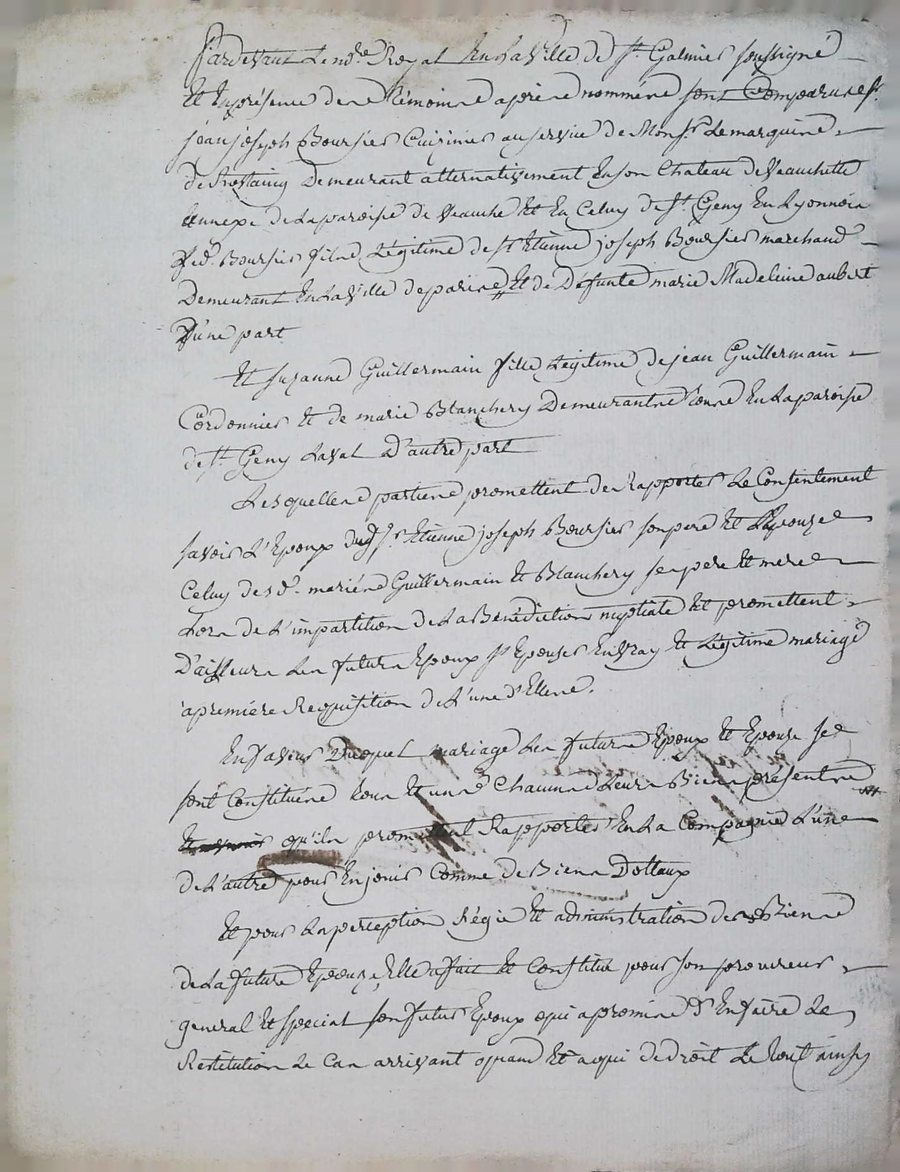 Pardevant Le no.re Royal En la Ville de St. Galmier soussigné
Et En présence des témoins après nommés sont Comparus sr.
jean joseph Boursier Cuizinier au service de Monsr. Le marquis
de Rostaing Demeurant alternativement En son Chateau de Veauchette
annexe de La paroisse de Veauche Et En Celuy de St. Geny En Lyonnois
Led. Boursier fils Légitime de sr. Etienne joseph Boursier marchand
Demeurant En La Ville de paris Et de Défunte marie Madeleine aubert
D'une part
Et Suzanne Guillermain fille Légitime de jean Guillermain
Cordonnier Et de marie Blanchery Demeurants tous En La paroisse
de St. Geny Laval D'autre part
Lesquelles parties promettent de Rapporter Le Consentement
savoir L'Epoux dud. sr. Etienne joseph Boursier son pere Et L'Epouze
Celuy desd. mariés Guillermain Et Blanchery ses pere Et mere
Lors de L'impartition de La Bénédiction nuptiale Et promettent
D'ailleurs Les futurs Epoux s'Epouser En vray Et Légitime mariage
a premiére Requisition de L'une d'Elles.
En faveur Duquel mariage Les futurs Epoux Et Epouse se
sont Constitués tous Et uns Chacuns Leurs Biens présents
qu'ils promettent Rapporter En La Compagnie L'un
de L'autre pour En jouir Comme de Biens Dottaux
Et pour La perception Régie Et administration des Biens
de La future Epouze, Elle a fait Et Constitué pour son procureur
general Et special son futur Epoux qui a promis d'En faire La
Restitution Le Cas arrivant quand Et a qui de droit Le tout ainsy